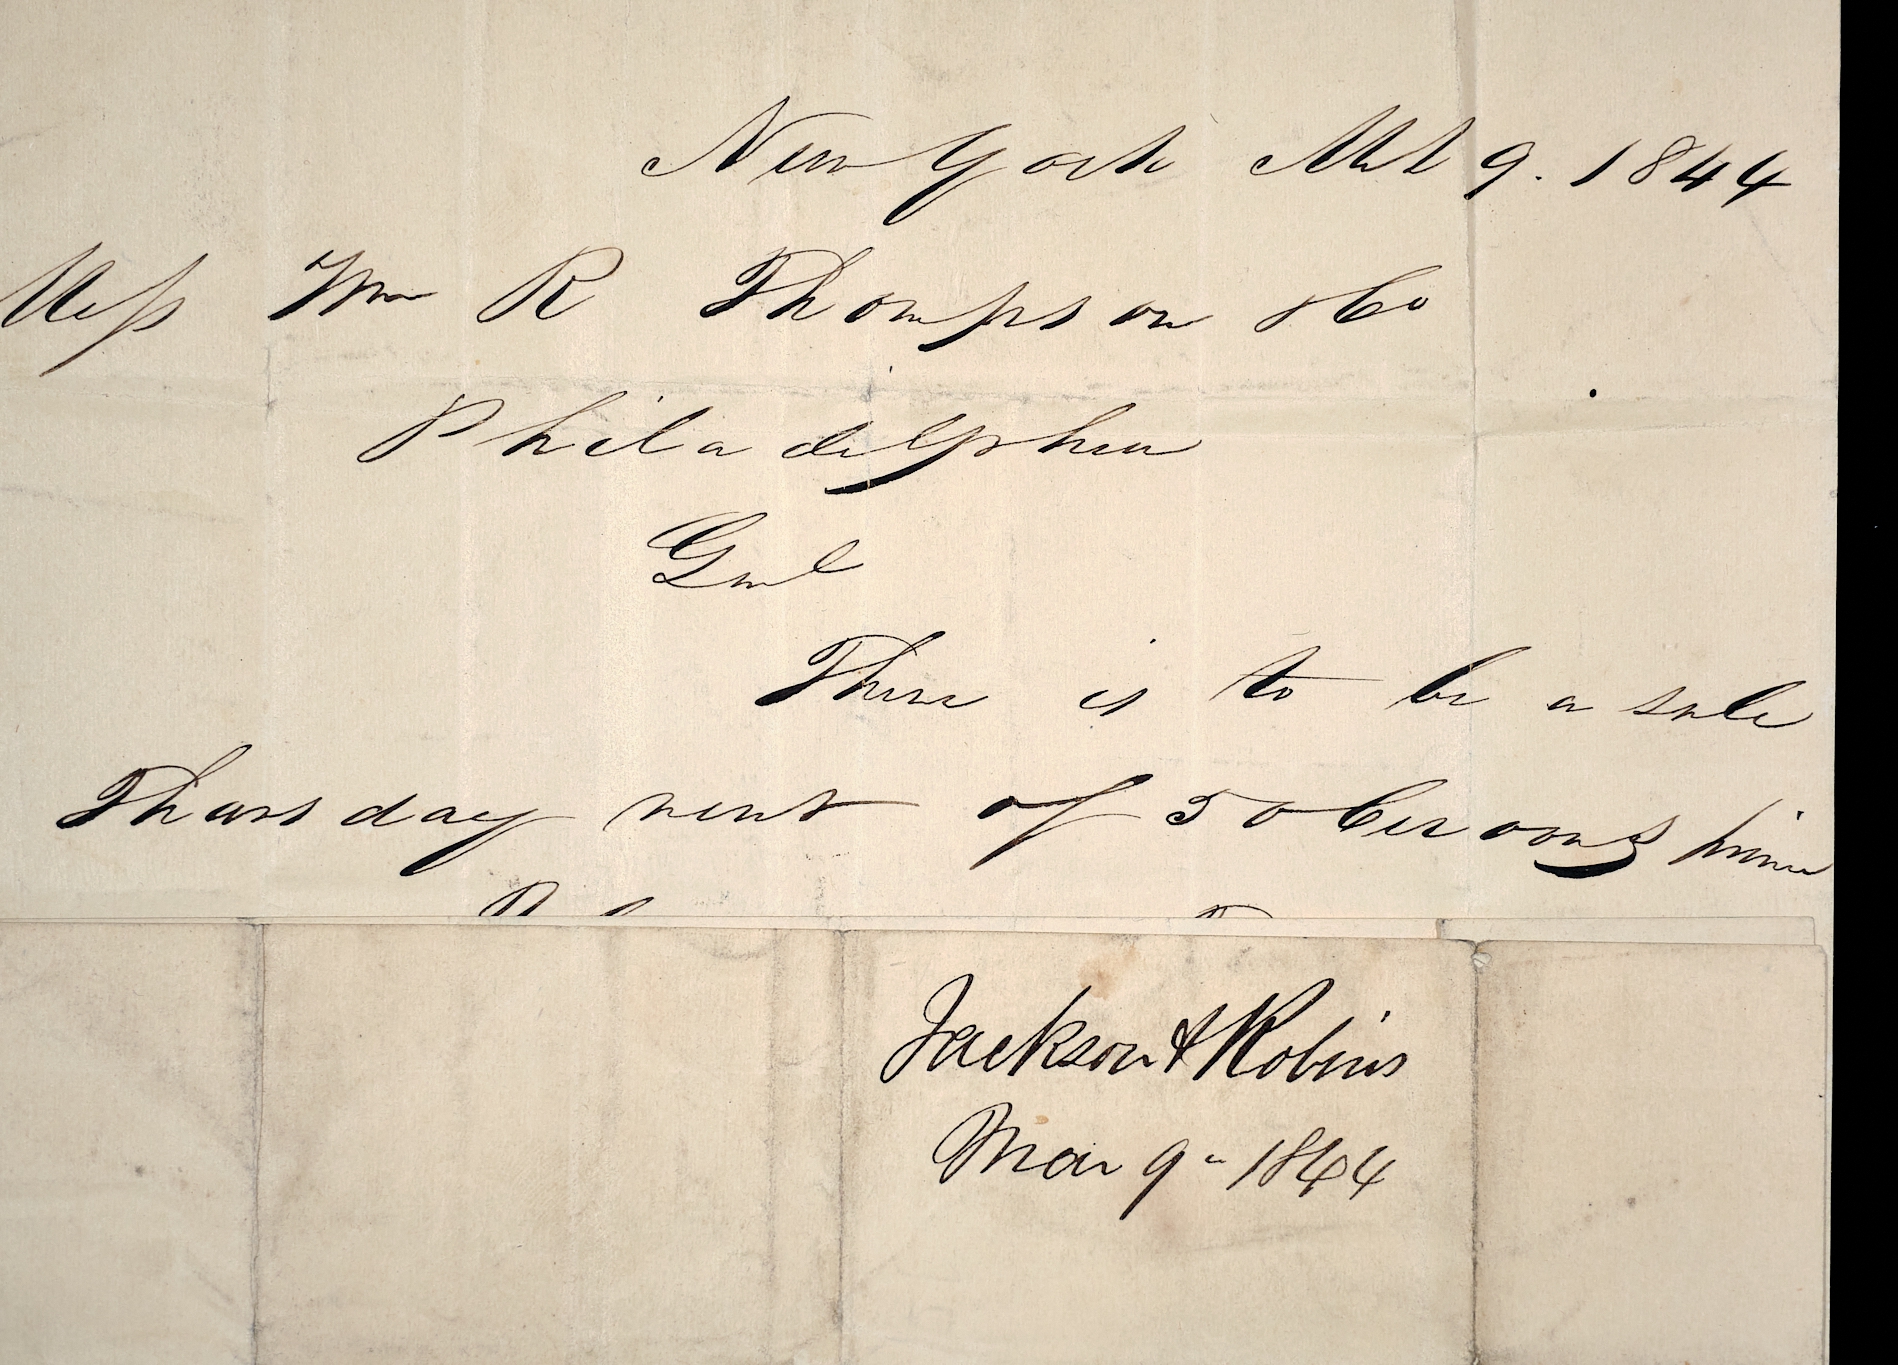 New York Mch 9. 1844
Mess Wm R Thompson & Co
Philadelphia
Gent
There is to be a sale
Thursday next of 50 Ceroons prime
Jackson & Robins
Mar 9 - 1844